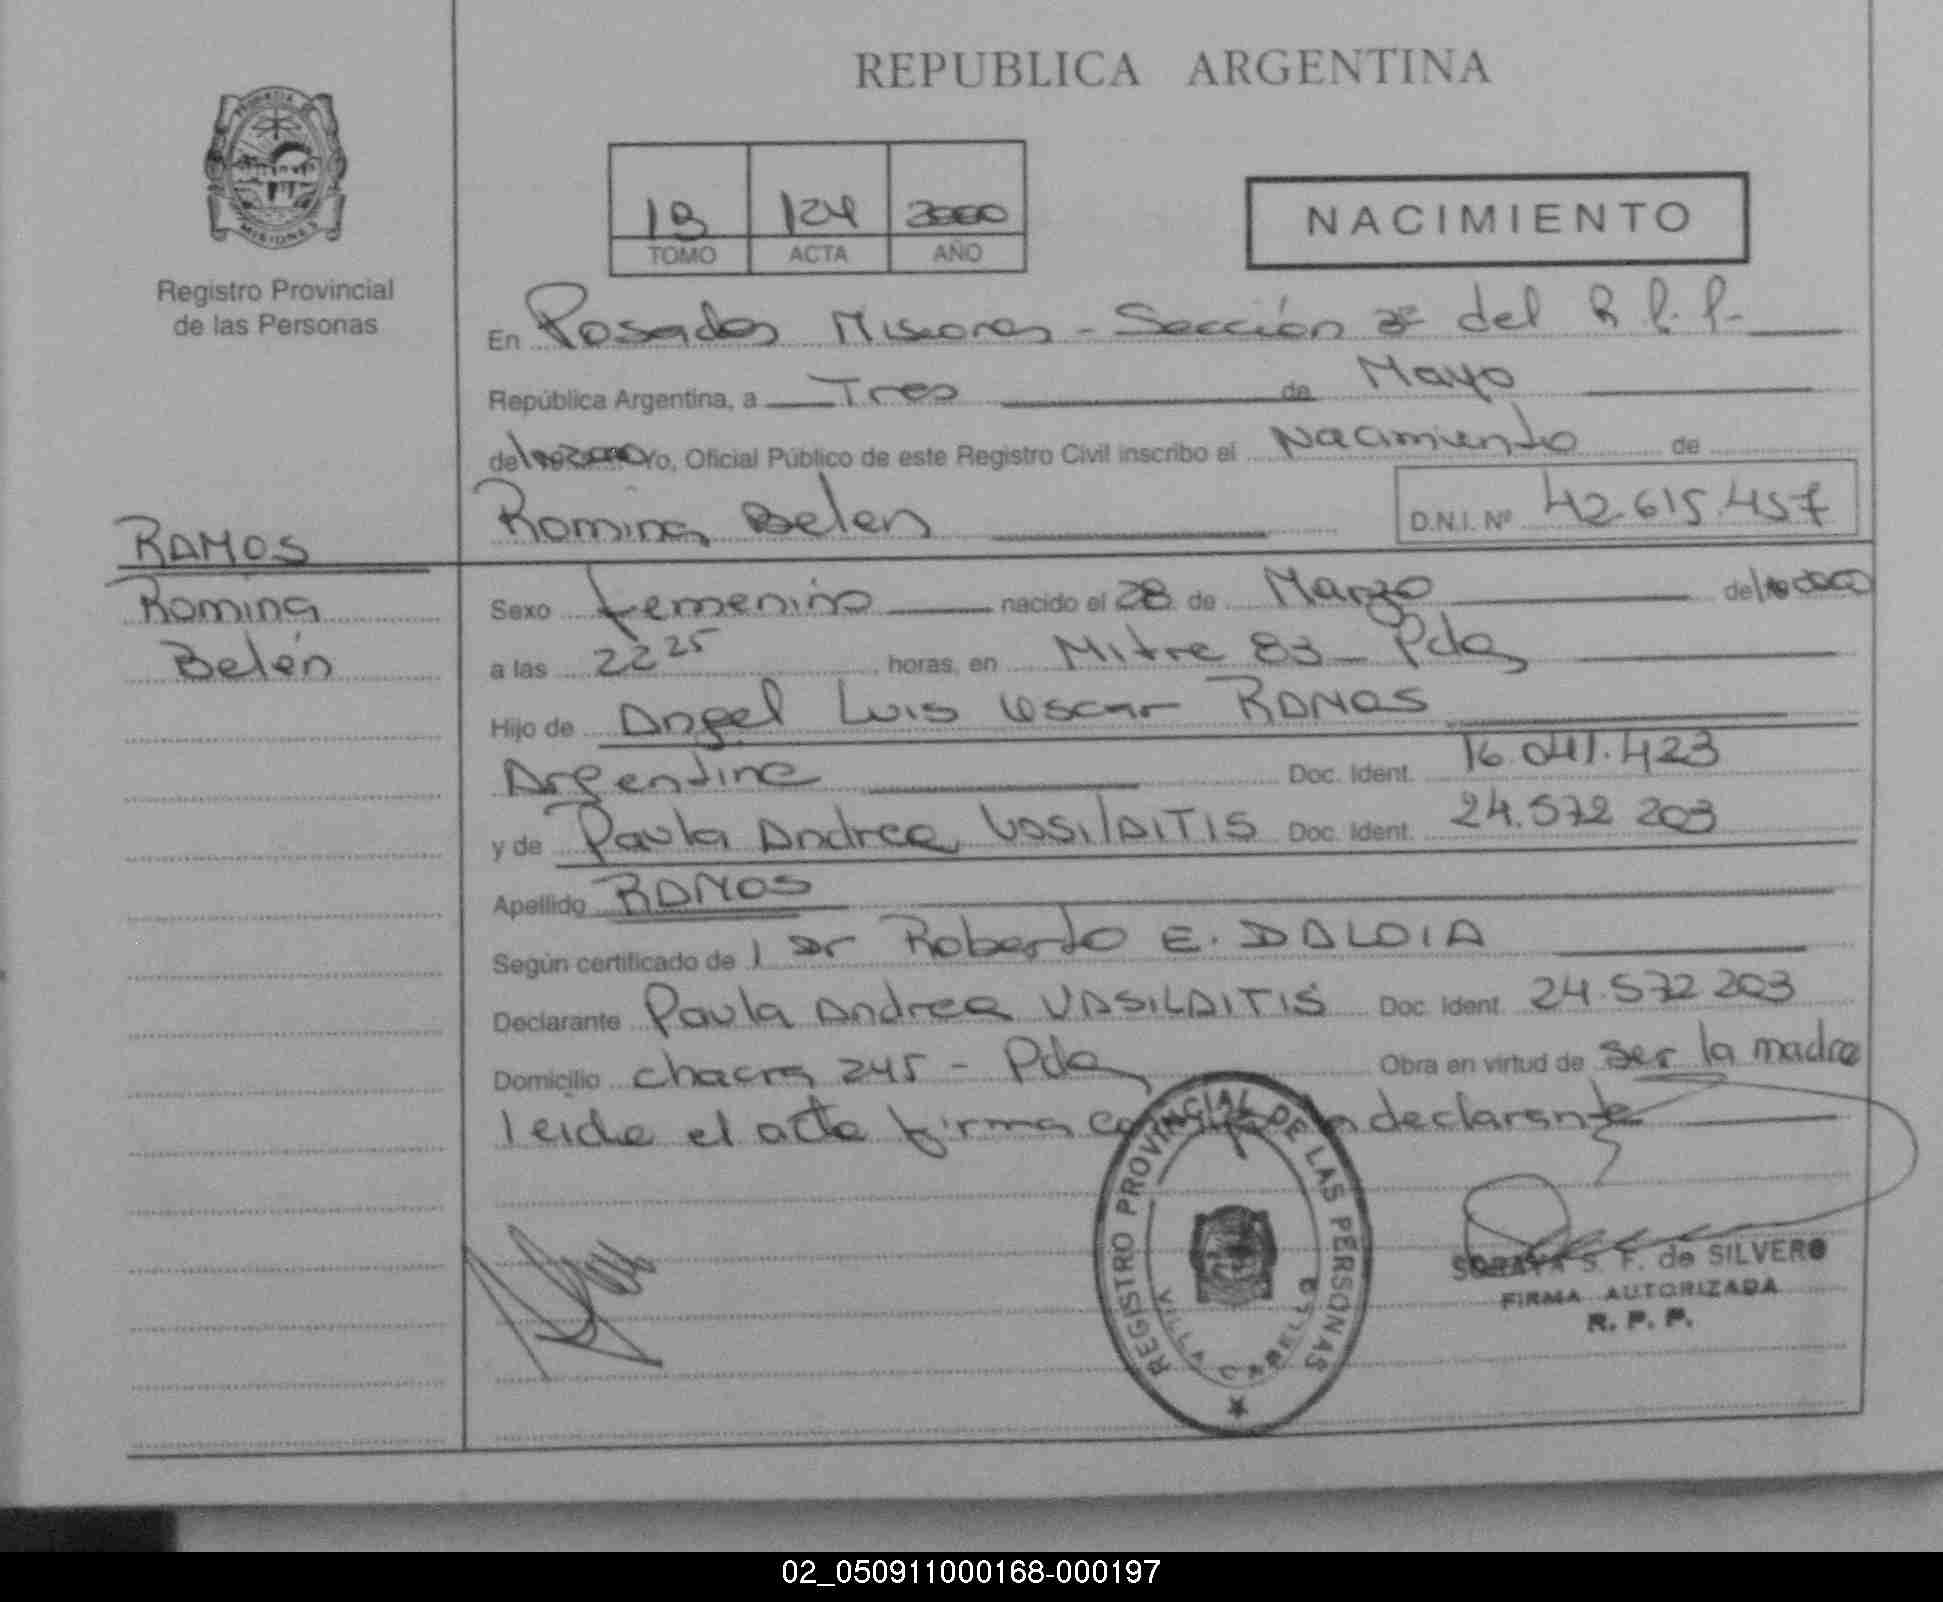 REPUBLICA ARGENTINA
PROVINCIA DE MISIONES
Registro Provincial
de las Personas
1B 124 2000
TOMO ACTA AÑO
NACIMIENTO
En Posadas Misiones - Sección 3ª del R.P.P.
República Argentina, a Tres de Mayo
del 2000 Yo, Oficial Público de este Registro Civil inscribo el Nacimiento de
Romina Belen D.N.I. Nº 42.615.457
RAMOS
Romina
Belén
Sexo femenino nacido el 28 de Marzo de 2000
a las 22 25 horas, en Mitre 83 - Pdas
Hijo de Angel Luis Oscar RAMOS
Argentino Doc. Ident. 16.041.423
y de Paula Andrea VASILAITIS Doc. Ident. 24.572 203
Apellido RAMOS
Según certificado de l Dr Roberto E. DALOIA
Declarante Paula Andrea VASILAITIS Doc. Ident. 24.572 203
Domicilio chacra 245 - Pdas Obra en virtud de ser la madre
leida el acta firma la declarante
REGISTRO PROVINCIAL DE LAS PERSONAS
VILLA CABELLO
SORAYA S. F. de SILVERO
FIRMA AUTORIZADA
R. P. P.
02_050911000168-000197